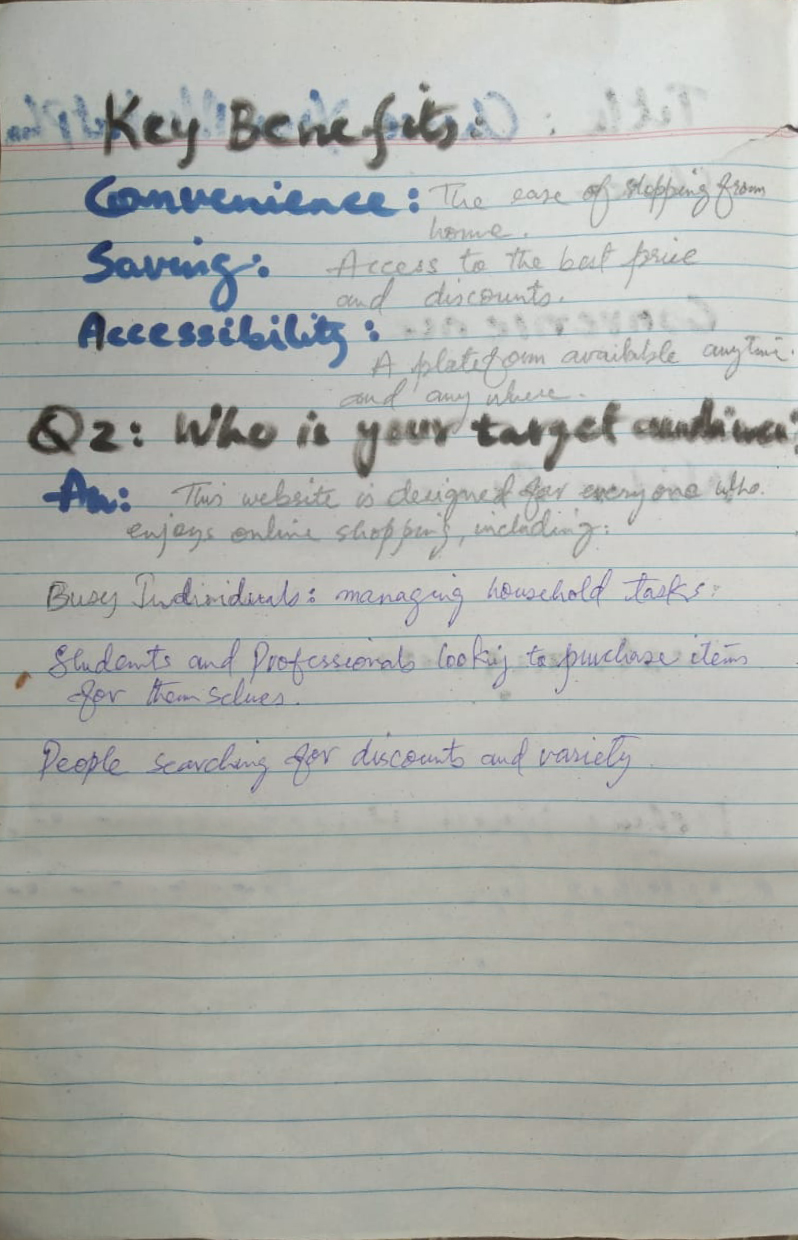 Key Benefits:
Convenience: The ease of shopping from
home.
Saving: Access to the best price
and discounts.
Accessibility:
A plateform available anytime
and any where.
Q2: Who is your target
An: This website is designed for everyone who
enjoys online shopping, including:
Busy Individuals: managing household tasks:
Students and Professionals looking to purchase items
for themselves.
People searching for discounts and variety